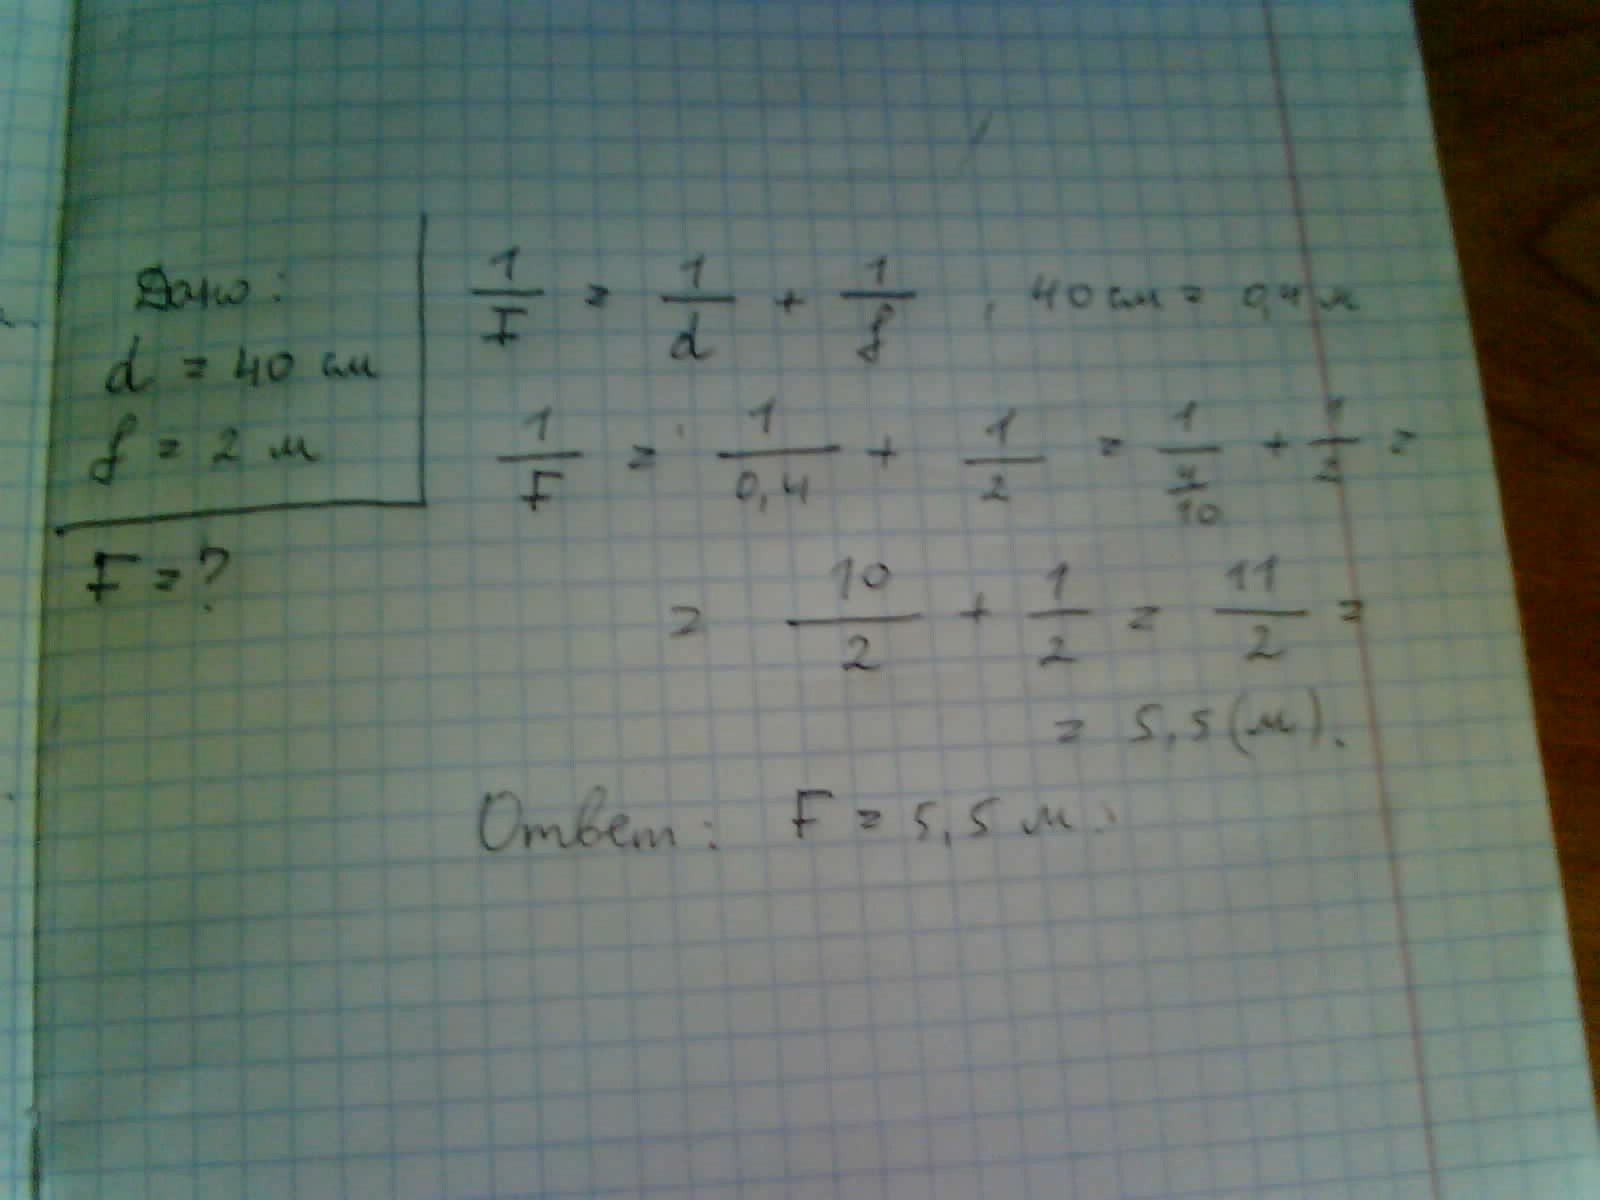 Дано:
d = 40 см
f = 2 м
F = ?
1/F = 1/d + 1/f , 40 см = 0,4 м
1/F = 1/0,4 + 1/2 = 1/(4/10) + 1/2 =
= 10/2 + 1/2 = 11/2 =
= 5,5 (м).
Ответ: F = 5,5 м.